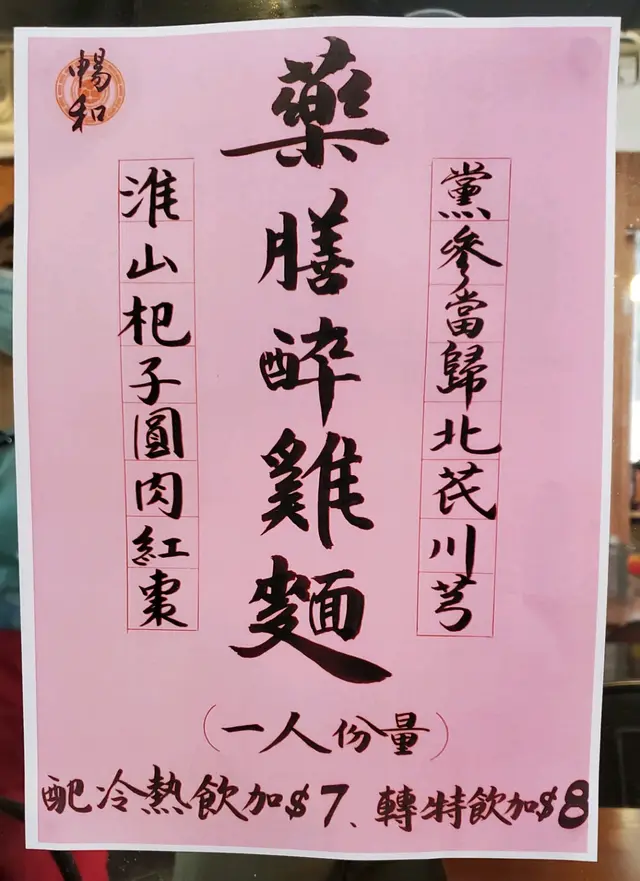 暢和
藥膳醉雞麵
黨參當歸北芪川芎
淮山杞子圓肉紅棗
(一人份量)
配冷熱飲加$7、轉特飲加$8